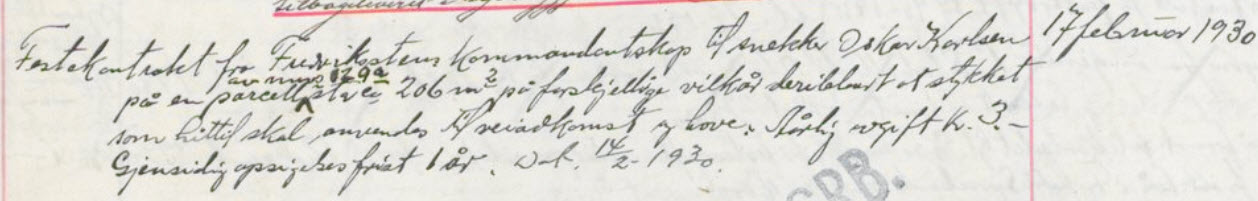 Festekontrakt fra Fredrikstens Kommandantskap til snekker Oskar Karlsen 17 februar 1930
på en parcell av mnr 1299 stor ca 206 m² på forskjellige vilkår deriblandt at stykket
som hittil skal anvendes til veiadkomst og have. Årlig avgift kr. 3.-
Gjensidig opsigelsesfrist 1 år. Dat. 14/2-1930.
GRB.